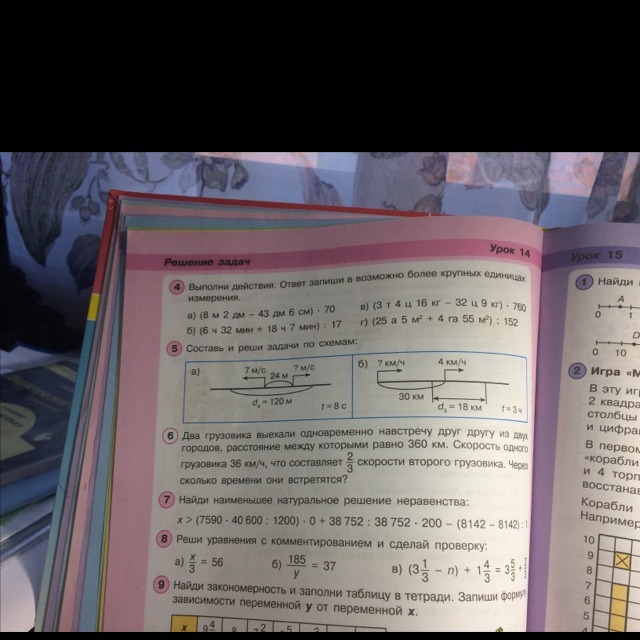 Решение задач
Урок 14
4 Выполни действия. Ответ запиши в возможно более крупных единицах
измерения.
а) (8 м 2 дм – 43 дм 6 см) · 70
в) (3 т 4 ц 16 кг – 32 ц 9 кг) · 760
б) (6 ч 32 мин + 18 ч 7 мин) : 17
г) (25 а 5 м² + 4 га 55 м²) : 152
5 Составь и реши задачи по схемам:
а)
7 м/с
24 м
? м/с
d₈ = 120 м
t = 8 с
б)
? км/ч
4 км/ч
30 км
d₃ = 18 км
t = 3 ч
6 Два грузовика выехали одновременно навстречу друг другу из двух
городов, расстояние между которыми равно 360 км. Скорость одного
грузовика 36 км/ч, что составляет 2/3 скорости второго грузовика. Через
сколько времени они встретятся?
7 Найди наименьшее натуральное решение неравенства:
x > (7590 · 40 600 : 1200) · 0 + 38 752 : 38 752 · 200 – (8142 – 8142) : 1
8 Реши уравнения с комментированием и сделай проверку:
а) x/3 = 56
б) 185/y = 37
в) (3 1/3 – n) + 1 4/3 = 3 5/3 +
9 Найди закономерность и заполни таблицу в тетради. Запиши формулу
зависимости переменной y от переменной x.
x
Урок 15
1 Найди
A
0 1
D
0 10
2 Игра «М
В эту иг
2 квадра
столбцы
и цифра
В первом
«корабли
и 4 торп
восстана
Корабли
Например
10
9
8
7
6
5
4